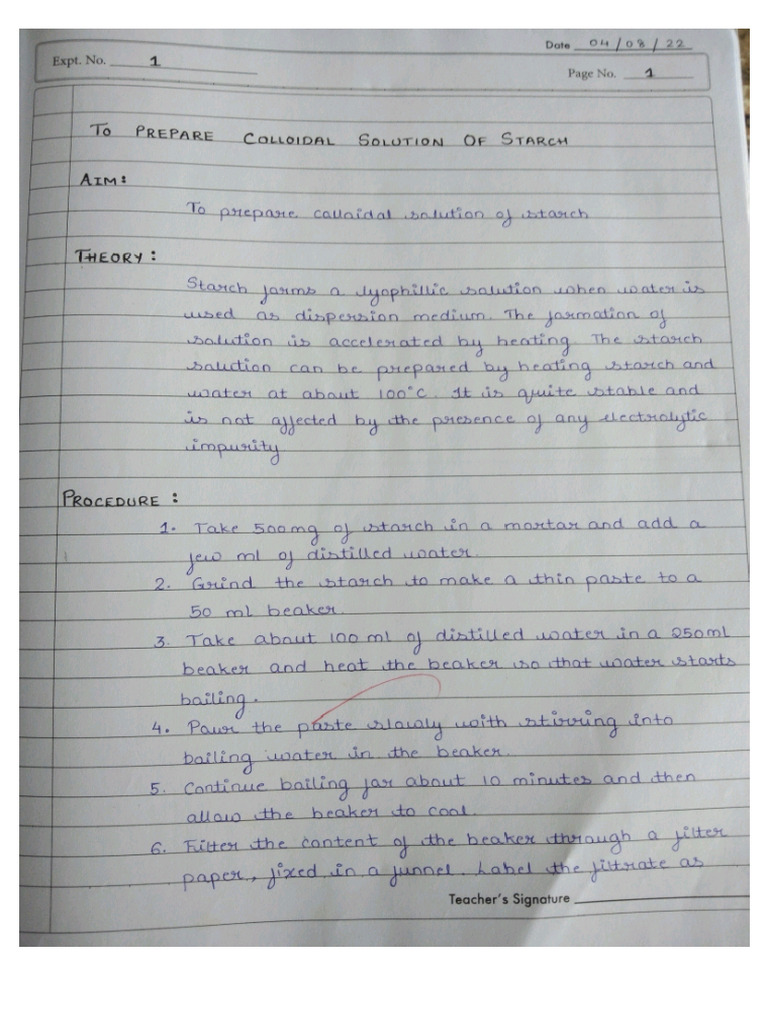 Date 04/08/22
Expt. No. 1
Page No. 1
To PREPARE COLLOIDAL SOLUTION OF STARCH
AIM:
To prepare colloidal solution of starch
THEORY:
Starch forms a lyophillic solution when water is
used as dispersion medium. The formation of
solution is accelerated by heating. The starch
solution can be prepared by heating starch and
water at about 100°C. It is quite stable and
is not affected by the presence of any electrolytic
impurity
PROCEDURE:
1. Take 500mg of starch in a mortar and add a
few ml of distilled water.
2. Grind the starch to make a thin paste to a
50 ml beaker.
3. Take about 100 ml of distilled water in a 250ml
beaker and heat the beaker so that water starts
boiling.
4. Pour the paste slowly with stirring into
boiling water in the beaker.
5. Continue boiling for about 10 minutes and then
allow the beaker to cool.
6. Filter the content of the beaker through a filter
paper, fixed in a funnel. Label the filtrate as
Teacher's Signature